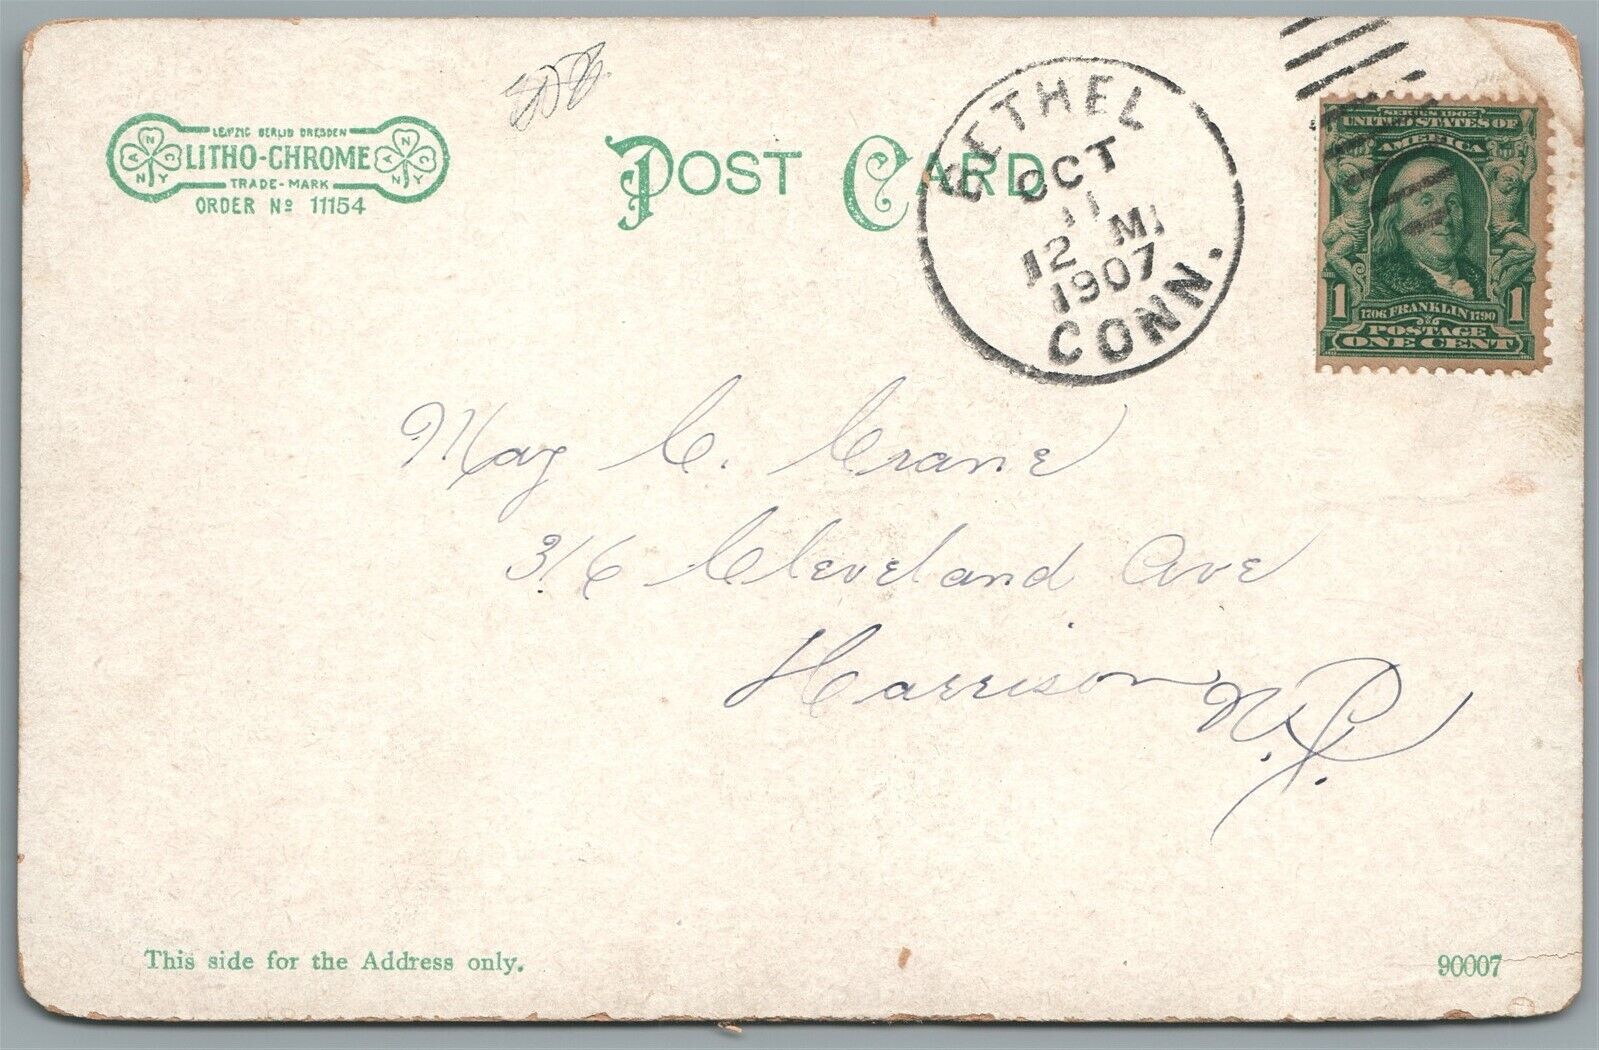 LEIPZIG BERLIN DRESDEN
LITHO-CHROME
TRADE-MARK
ORDER No 11154
A N C
N Y
A N C
N Y
POST CARD
BETHEL
OCT
11
12 M
1907
CONN.
SERIES 1902
UNITED STATES OF
AMERICA
1 1
1706 FRANKLIN 1790
POSTAGE
ONE CENT
May C. Crane
316 Cleveland Ave
Harrison N.J.
This side for the Address only.
90007